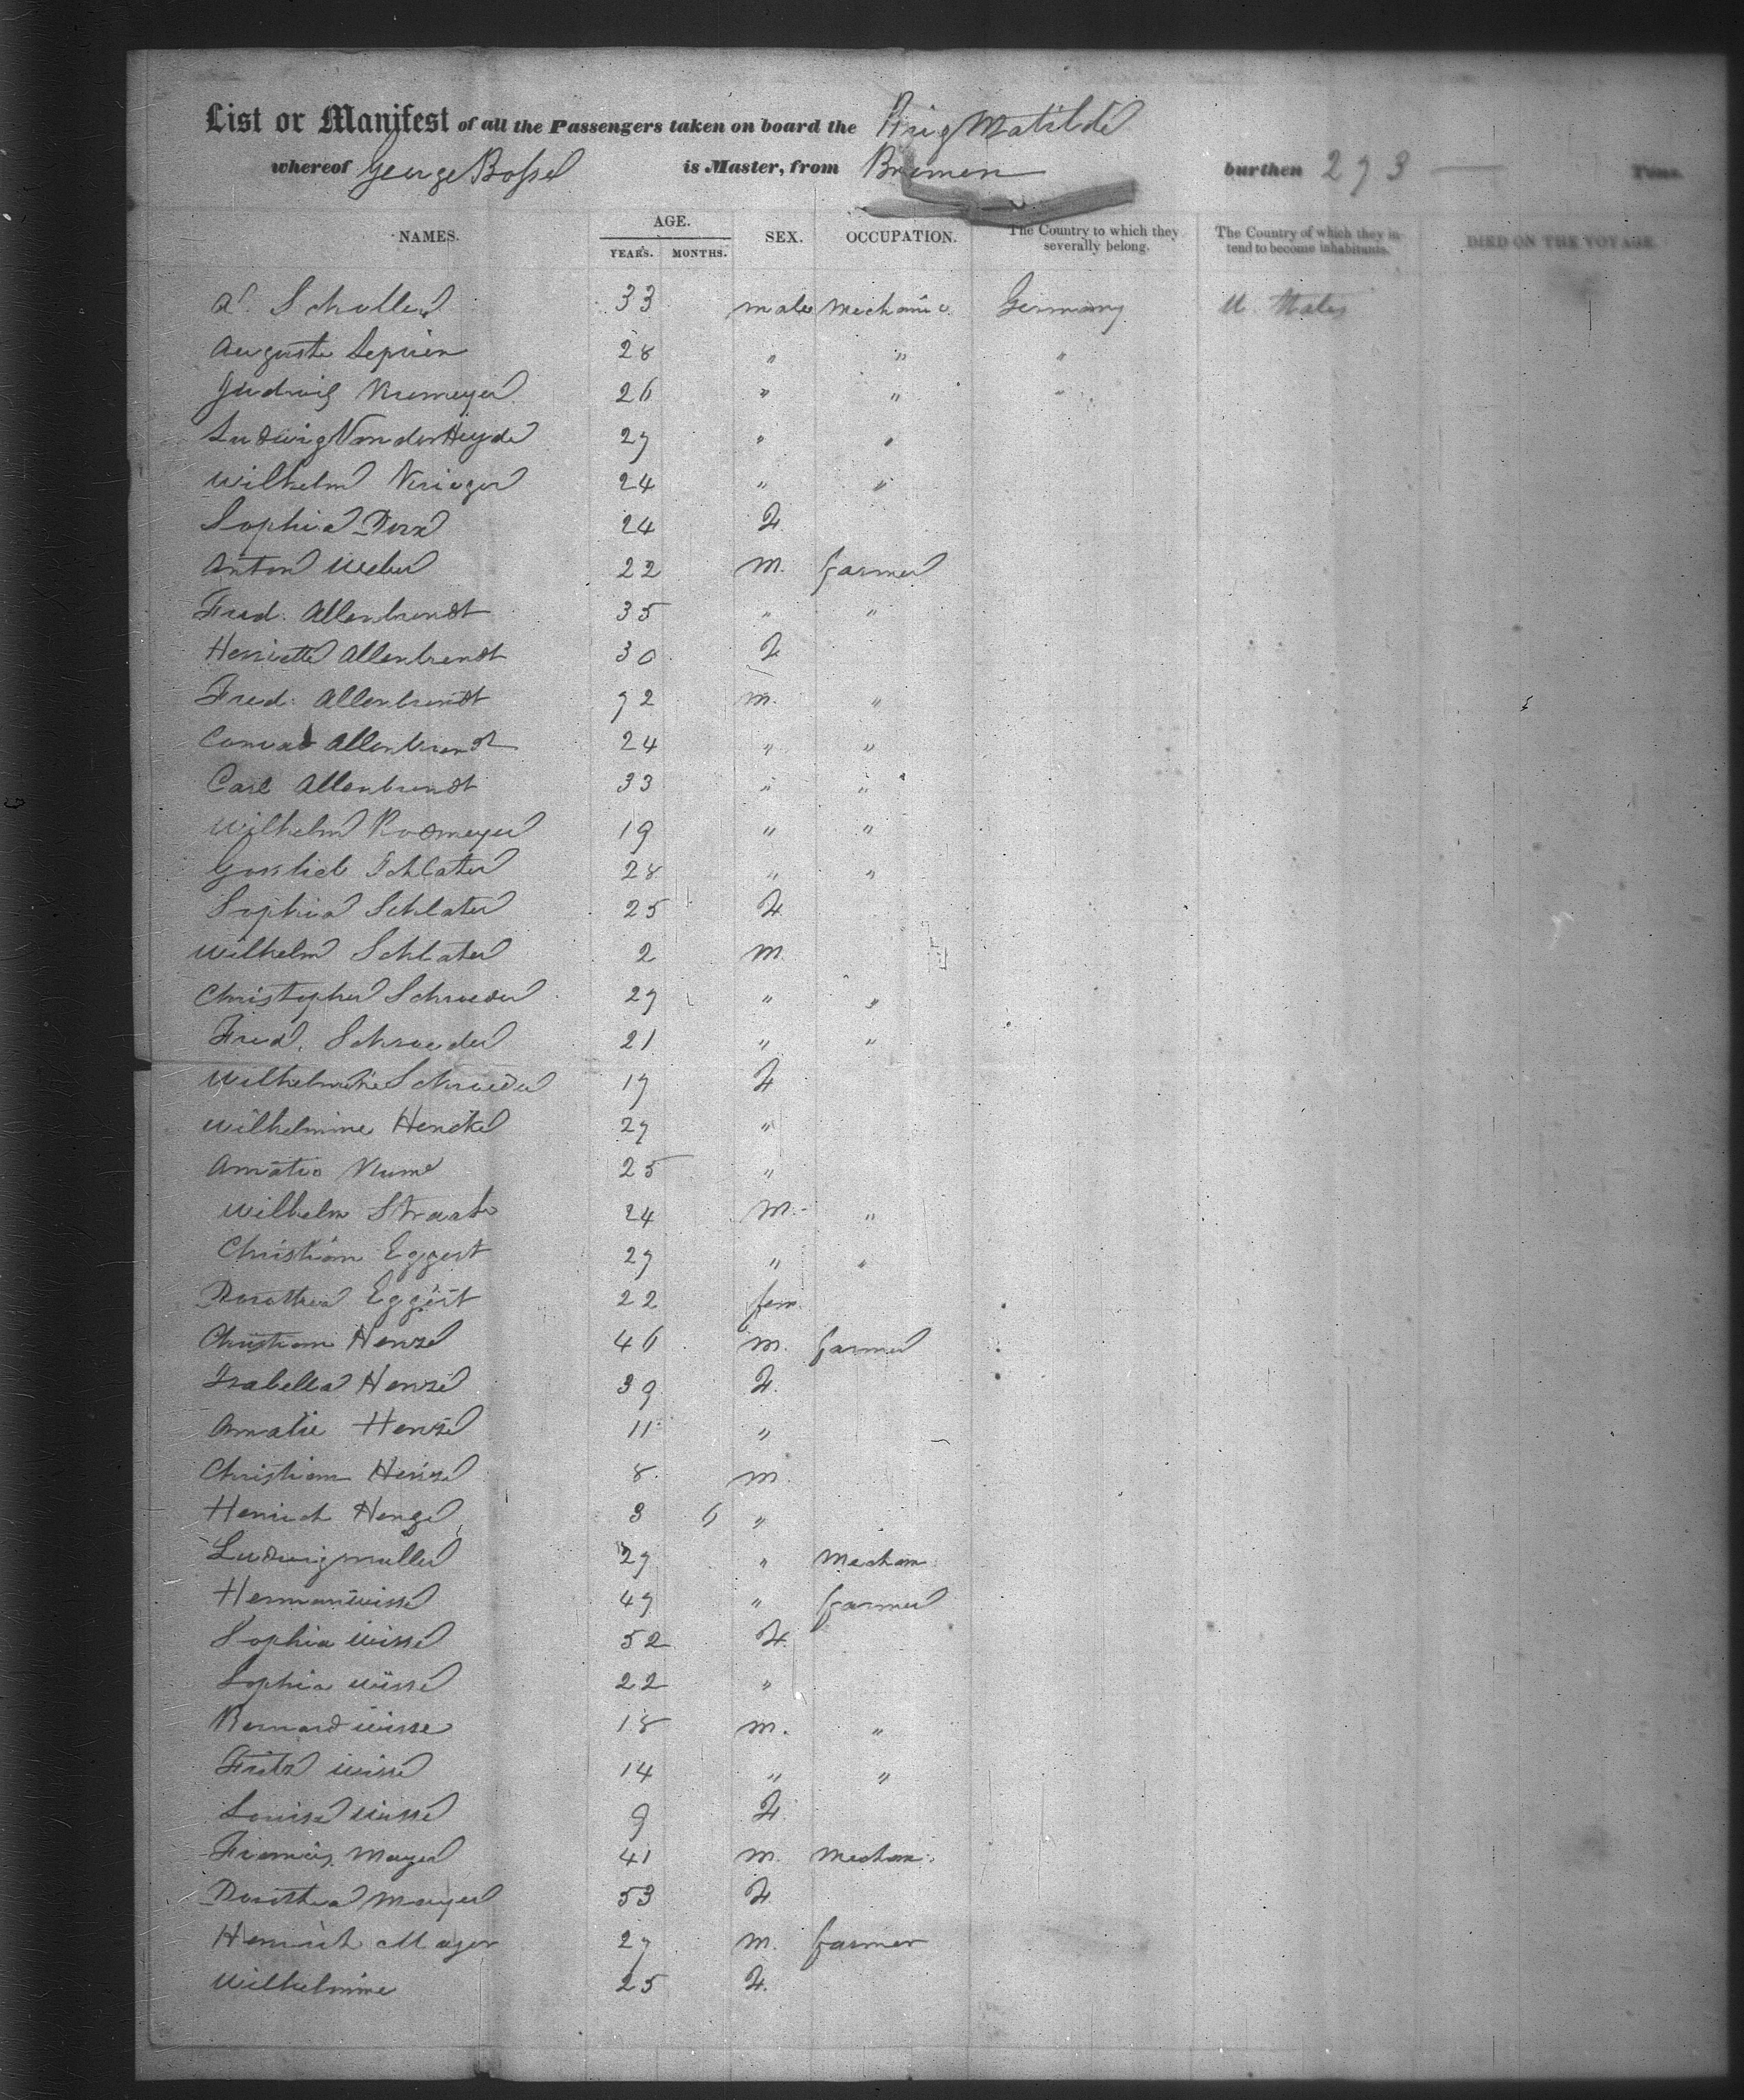 List or Manifest of all the Passengers taken on board the Brig Matilde
whereof George Bossel is Master, from Bremen burthen 273 — Tons.
NAMES. AGE. SEX. OCCUPATION. The Country to which they severally belong. The Country of which they intend to become inhabitants. DIED ON THE VOYAGE.
YEARS. MONTHS.
A. Schuller 33 male mechanic Germany U. States
Auguste 28 " " "
26 " " "
Ludwig Von der Heyde 27 " "
Wilhelm Krieger 24 " "
Sophia 24 F
Anton Weber 22 m. farmer
Fred. Allenbrandt 35 " "
Henriette Allenbrandt 30 F
Fred. Allenbrandt 72 m. "
Conrad Allenbrandt 24 " "
Carl Allenbrandt 33 " "
Wilhelm 19 " "
Gottlieb Schlater 28 " "
Sophia Schlater 25 F
Wilhelm Schlater 2 m
Christopher Schroeder 27 " "
Fred. Schroeder 21 " "
Wilhelmine Schroeder 17 F
Wilhelmine Henckel 27 "
25 "
Wilhelm Straate 24 m. "
Christian Eggert 27 " "
Dorothea Eggert 22 fem.
Christian Henzel 46 m. farmer
Isabella Henzel 39 F.
Amalie Henzel 11 "
Christian Henzel 8 m
Henrich Henzel 3 6 "
Ludwig Muller 27 " Mechan
Herman Wisse 47 " farmer
Sophia Wisse 52 F.
Sophia Wisse 22 "
Bernard Wisse 18 m. "
Fritz Wisse 14 " "
Louise Wisse 9 F
Francis Mayer 41 m. Mechan.
Dorothea Mayer 53 F
Henrich Mayer 27 m. farmer
Wilhelmine 25 F.